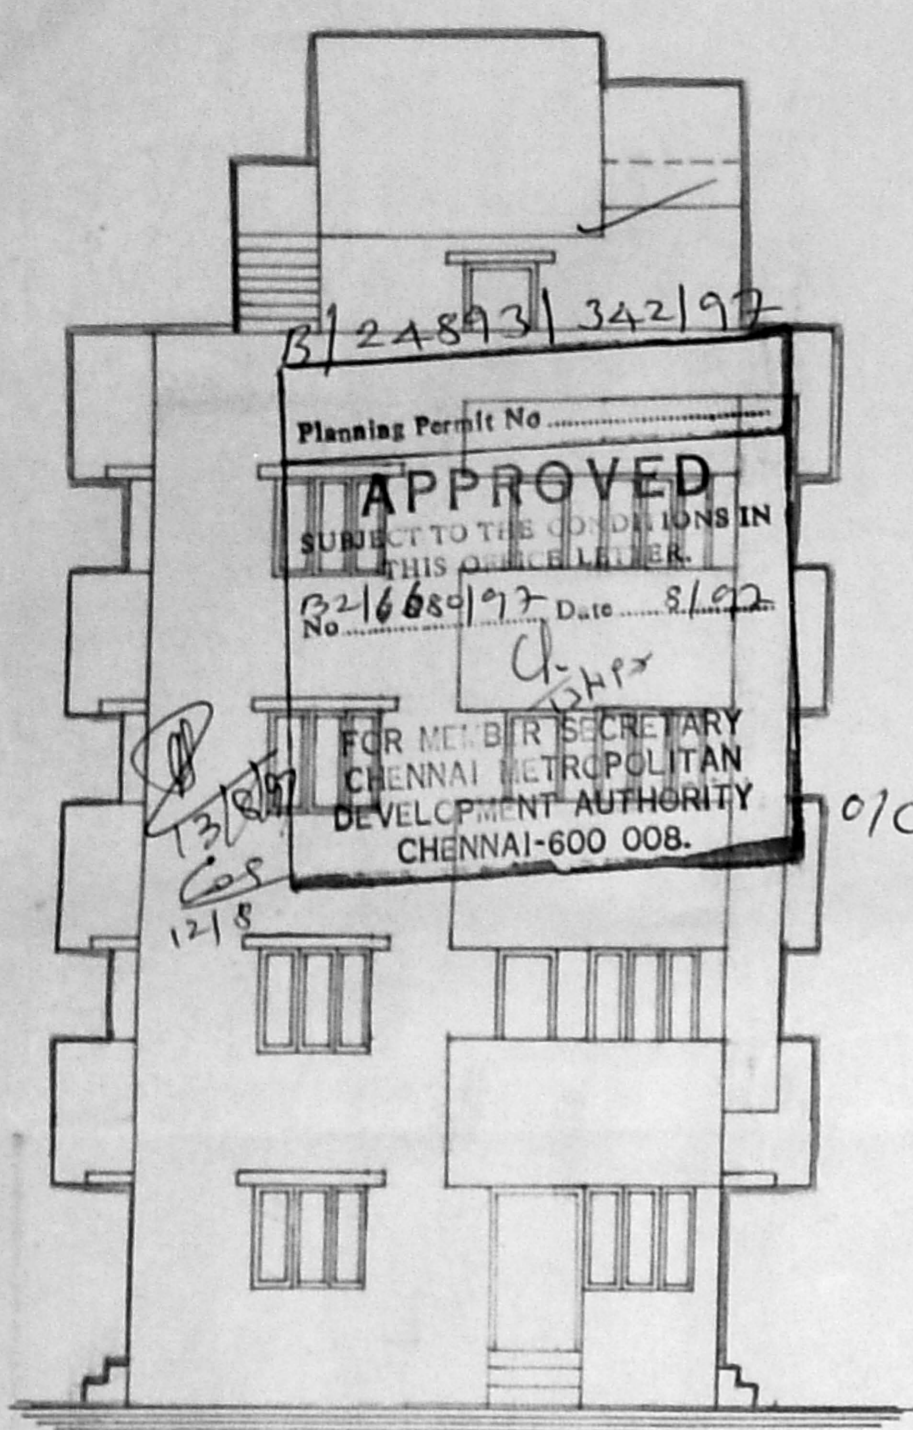 B/24893/342/97
Planning Permit No ..............................
APPROVED
SUBJECT TO THE CONDITIONS IN
THIS OFFICE LETTER.
No B2/6680/97 Date 8/97
FOR MEMBER SECRETARY
CHENNAI METROPOLITAN
DEVELOPMENT AUTHORITY
CHENNAI-600 008.
13/8/97
12/8